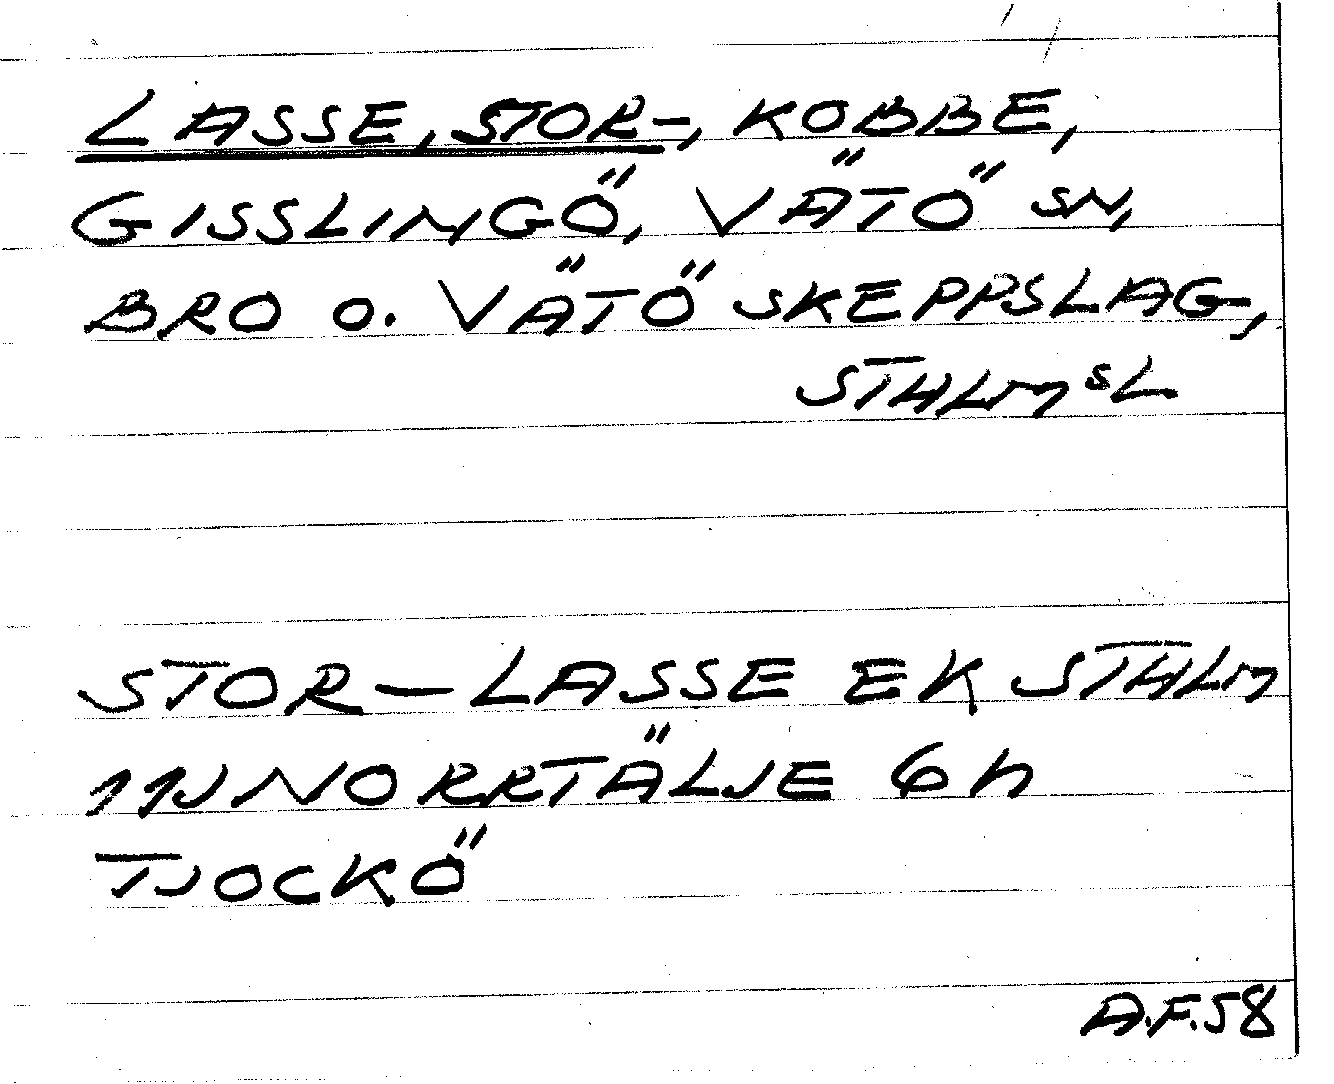 LASSE, STOR-, KOBBE,
GISSLINGÖ, VÄTÖ SN,
BRO O. VÄTÖ SKEPPSLAG,
STHLMSL
STOR-LASSE EK STHLM
11J NORRTÄLJE 6h
TJOCKÖ
A.F.58